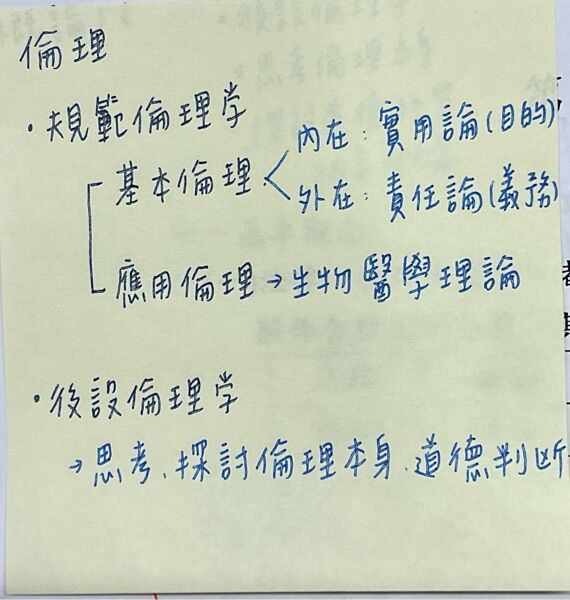 倫理
・規範倫理学
內在：實用論(目的)
基本倫理
外在：責任論(義務)
應用倫理→生物醫學理論
・後設倫理学
→思考、探討倫理本身、道德判断